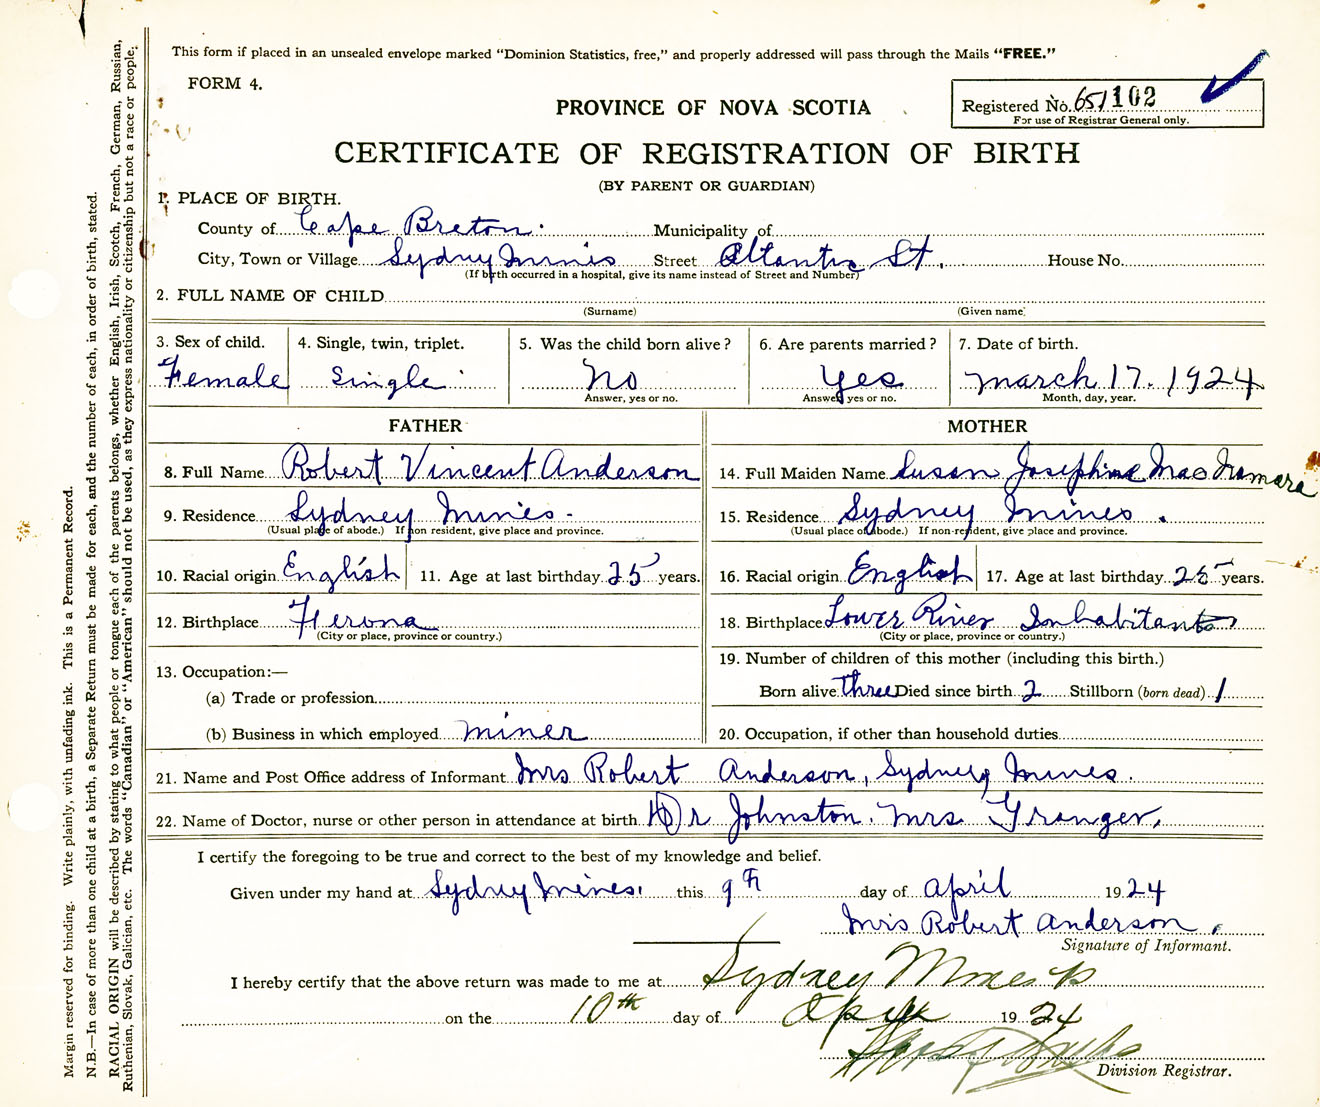 This form if placed in an unsealed envelope marked "Dominion Statistics, free," and properly addressed will pass through the Mails "FREE."
FORM 4.
PROVINCE OF NOVA SCOTIA
Registered No. 651102
For use of Registrar General only.
CERTIFICATE OF REGISTRATION OF BIRTH
(BY PARENT OR GUARDIAN)
1. PLACE OF BIRTH.
County of Cape Breton. Municipality of
City, Town or Village Sydney Mines Street Altantic St. House No.
(If birth occurred in a hospital, give its name instead of Street and Number)
2. FULL NAME OF CHILD
(Surname) (Given name)
3. Sex of child. 4. Single, twin, triplet. 5. Was the child born alive? 6. Are parents married? 7. Date of birth.
Female Single No Yes March 17. 1924
Answer, yes or no. Answer, yes or no. Month, day, year.
FATHER MOTHER
8. Full Name Robert Vincent Anderson 14. Full Maiden Name Susan Josephine MacNamara
9. Residence Sydney Mines. 15. Residence Sydney Mines.
(Usual place of abode.) If non resident, give place and province. (Usual place of abode.) If non-resident, give place and province.
10. Racial origin English 11. Age at last birthday 25 years. 16. Racial origin English 17. Age at last birthday 25 years.
12. Birthplace 18. Birthplace Lower River Inhabitants
(City or place, province or country.) (City or place, province or country.)
19. Number of children of this mother (including this birth.)
13. Occupation:—
(a) Trade or profession Born alive three Died since birth 2 Stillborn (born dead) 1
(b) Business in which employed miner 20. Occupation, if other than household duties
21. Name and Post Office address of Informant Mrs Robert Anderson, Sydney Mines.
22. Name of Doctor, nurse or other person in attendance at birth Dr Johnston. Mrs Granger.
I certify the foregoing to be true and correct to the best of my knowledge and belief.
Given under my hand at Sydney Mines. this 9th day of April 1924
Mrs Robert Anderson.
Signature of Informant.
I hereby certify that the above return was made to me at Sydney Mines
on the 10th day of April 1924
Division Registrar.
Margin reserved for binding. Write plainly, with unfading ink. This is a Permanent Record.
N.B.—In case of more than one child at a birth, a Separate Return must be made for each, and the number of each, in order of birth, stated.
RACIAL ORIGIN will be described by stating to what people or tongue each of the parents belongs, whether English, Irish, Scotch, French, German, Russian,
Ruthenian, Slovak, Galician, etc. The words "Canadian" or "American" should not be used, as they express nationality or citizenship but not a race or people.